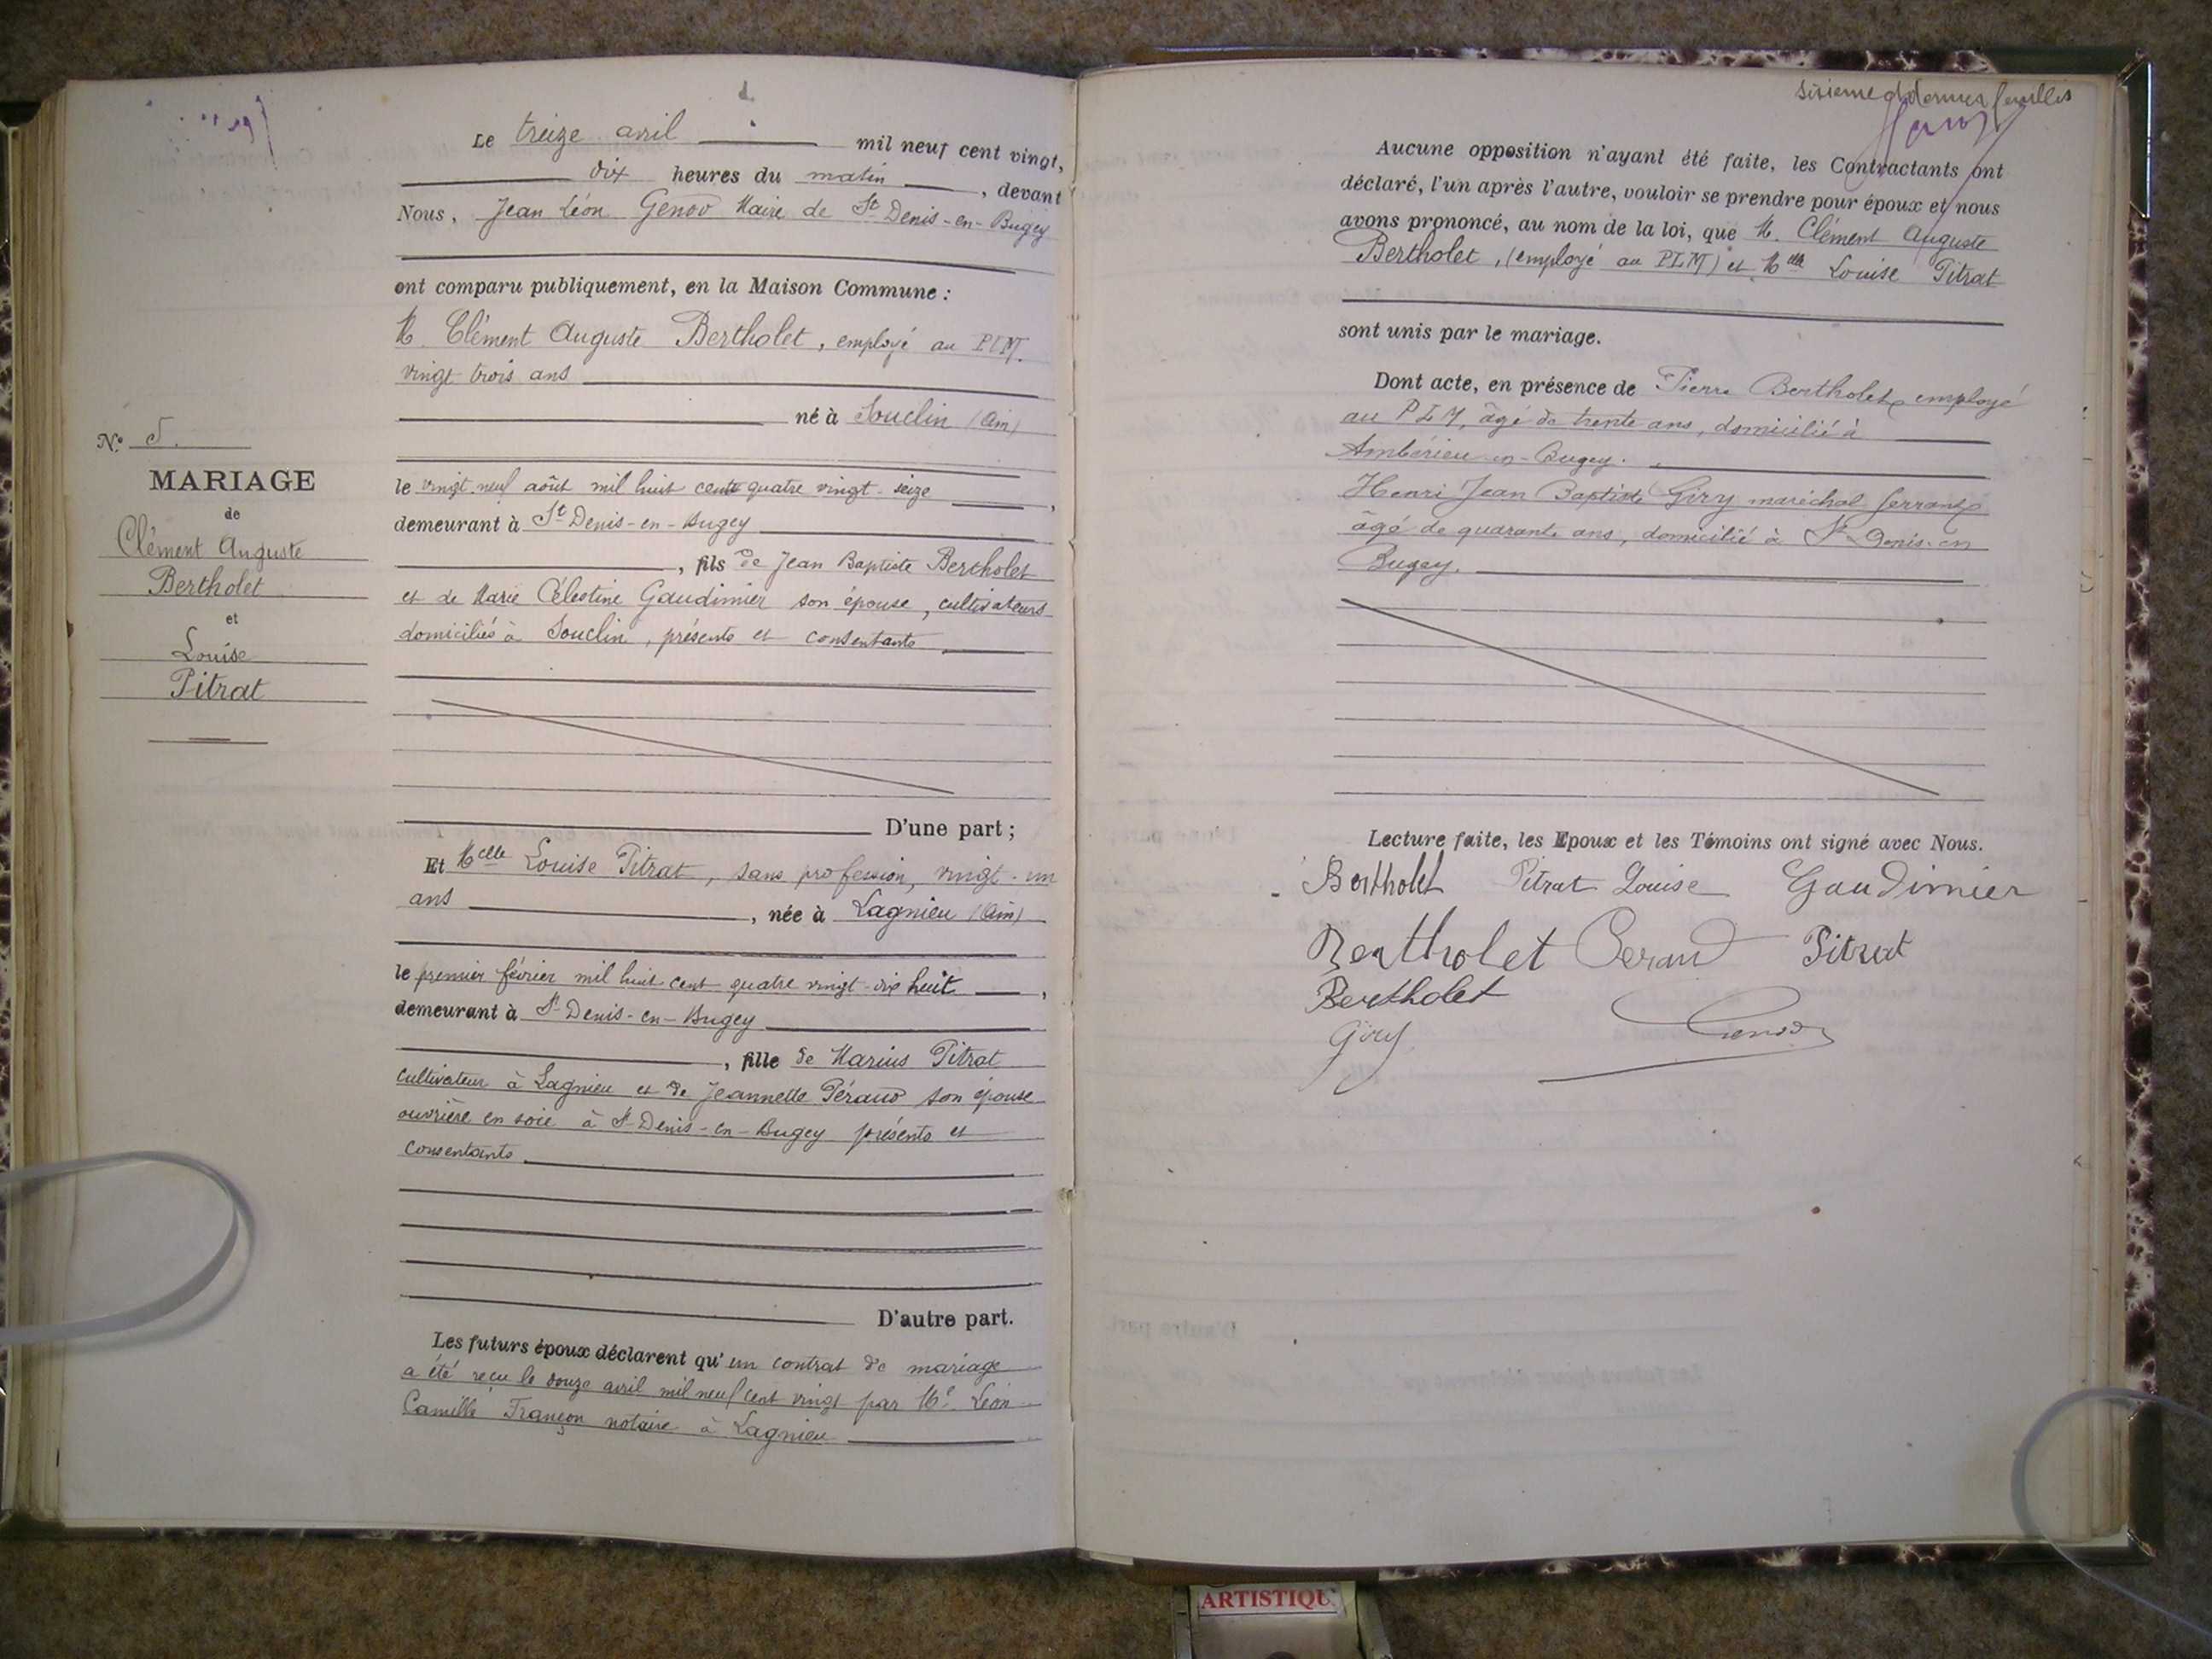 Le treize avril mil neuf cent vingt,
dix heures du matin, devant
Nous, Jean Léon Genod Maire de St Denis-en-Bugey
ont comparu publiquement, en la Maison Commune :
M. Clément Auguste Bertholet, employé au PLM.
vingt-trois ans
né à Souclin (Ain)
le vingt neuf août mil huit cent quatre vingt-seize,
demeurant à St Denis-en-Bugey
, fils de Jean Baptiste Bertholet
et de Marie Célestine Gaudimier son épouse, cultivateurs
domiciliés à Souclin, présents et consentants
D'une part ;
Et Melle Louise Pitrat, sans profession, vingt-un
ans, née à Lagnieu (Ain)
le premier février mil huit cent quatre vingt-dix huit,
demeurant à St Denis-en-Bugey
, fille de Marius Pitrat
cultivateur à Lagnieu et de Jeannette Péraud son épouse
ouvrière en soie à St-Denis-en-Bugey présents et
consentants
D'autre part.
Les futurs époux déclarent qu'un contrat de mariage
a été reçu le douze avril mil neuf cent vingt par Me Léon
Camille Françon notaire à Lagnieu
No 5.
MARIAGE
de
Clément Auguste
Bertholet
et
Louise
Pitrat
sixième et dernier feuillet
Aucune opposition n'ayant été faite, les Contractants ont
déclaré, l'un après l'autre, vouloir se prendre pour époux et nous
avons prononcé, au nom de la loi, que M. Clément Auguste
Bertholet, (employé au PLM) et Melle Louise Pitrat
sont unis par le mariage.
Dont acte, en présence de Pierre Bertholet employé
au PLM, âgé de trente ans, domicilié à
Ambérieu-en-Bugey.
Henri Jean Baptiste Giry maréchal ferrant
âgé de quarante ans, domicilié à St Denis-en
Bugey.
Lecture faite, les Epoux et les Témoins ont signé avec Nous.
Bertholet Pitrat Louise Gaudimier
Bertholet Peraud Pitrat
Bertholet
Giry Genod
ARTISTIQU